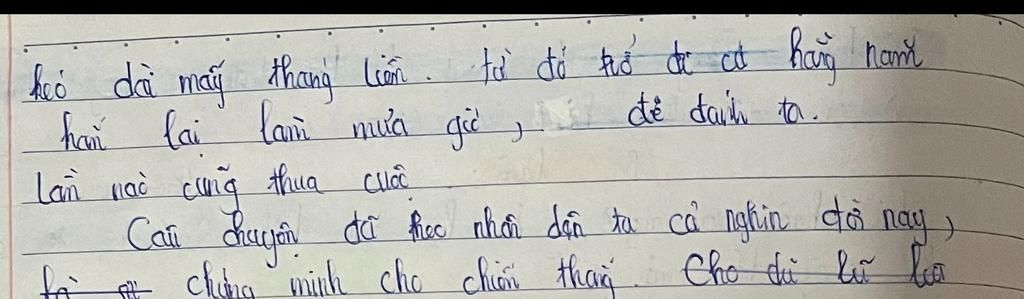 kéo dài mấy tháng liền. từ đó trở đi cứ hằng năm
hắn lại làm mưa gió, để đánh ta.
Lần nào cũng thua cuộc
Câu chuyện đã theo nhân dân ta cả nghìn đời nay,
chứng minh cho chiến thắng. Cho dù lũ